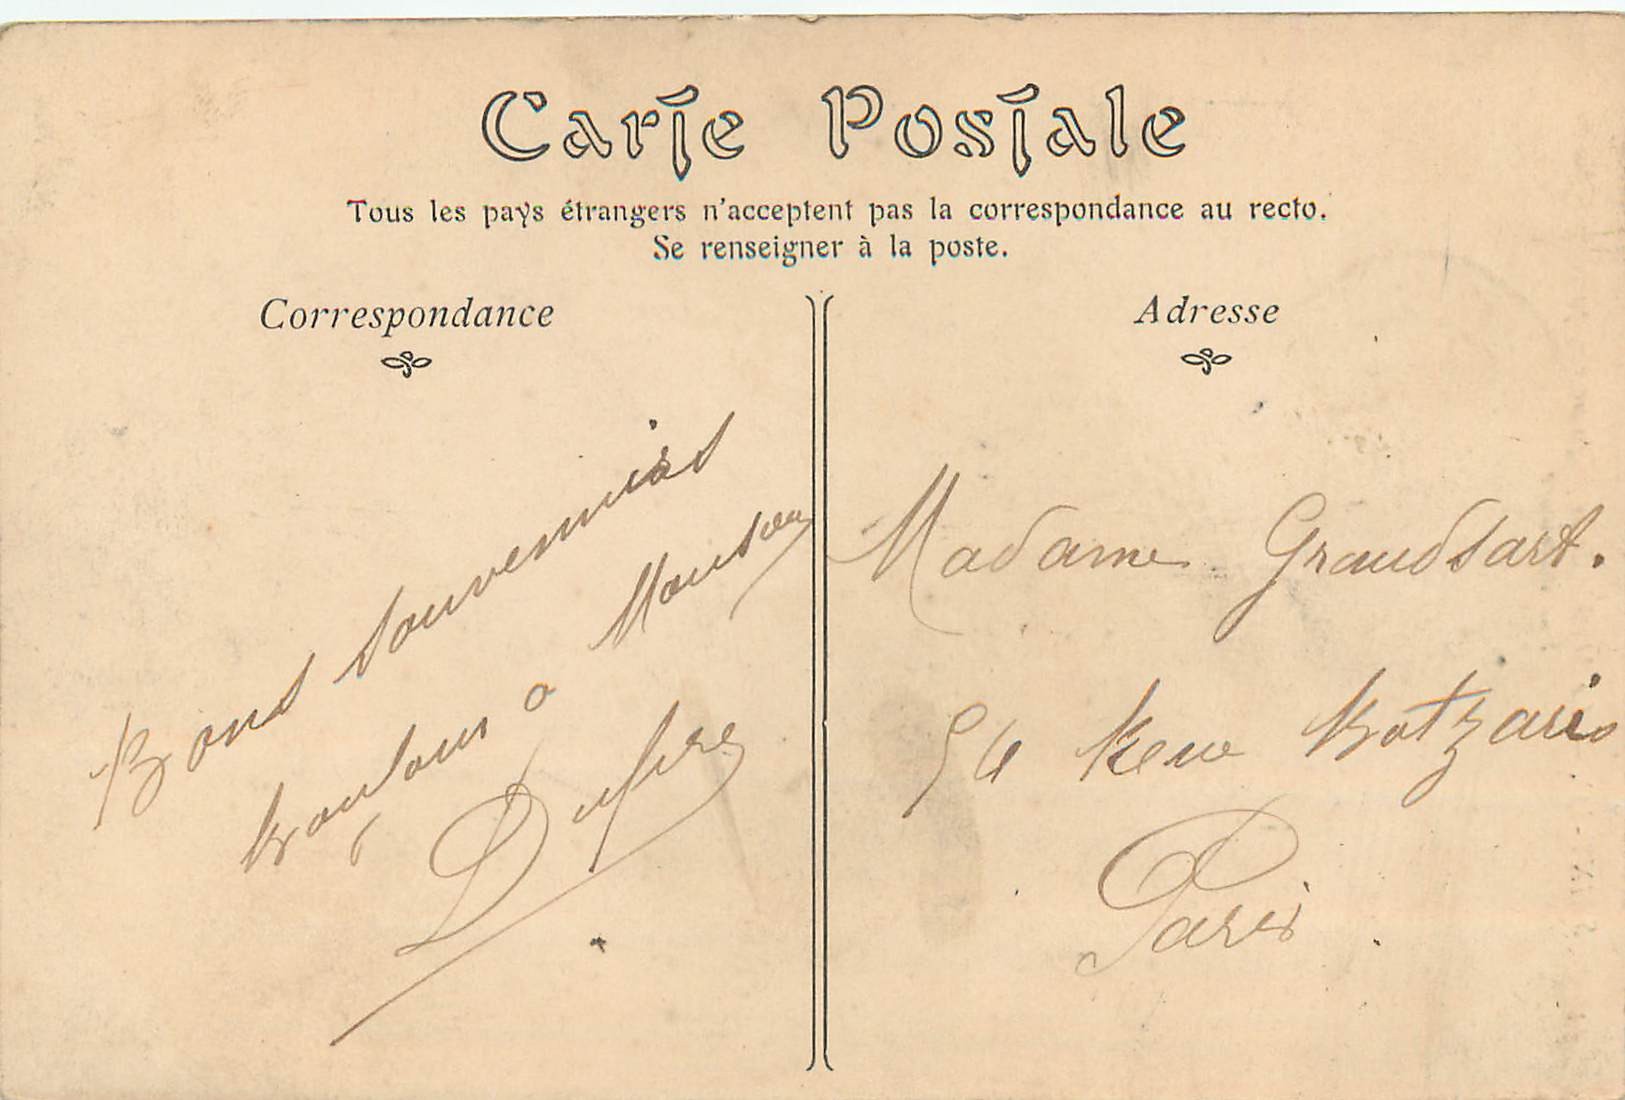 Carte Postale
Tous les pays étrangers n'acceptent pas la correspondance au recto.
Se renseigner à la poste.
Correspondance
Adresse
Bons souvenirs
à
Madame Grandsart.
54 Rue Botzaris
Paris